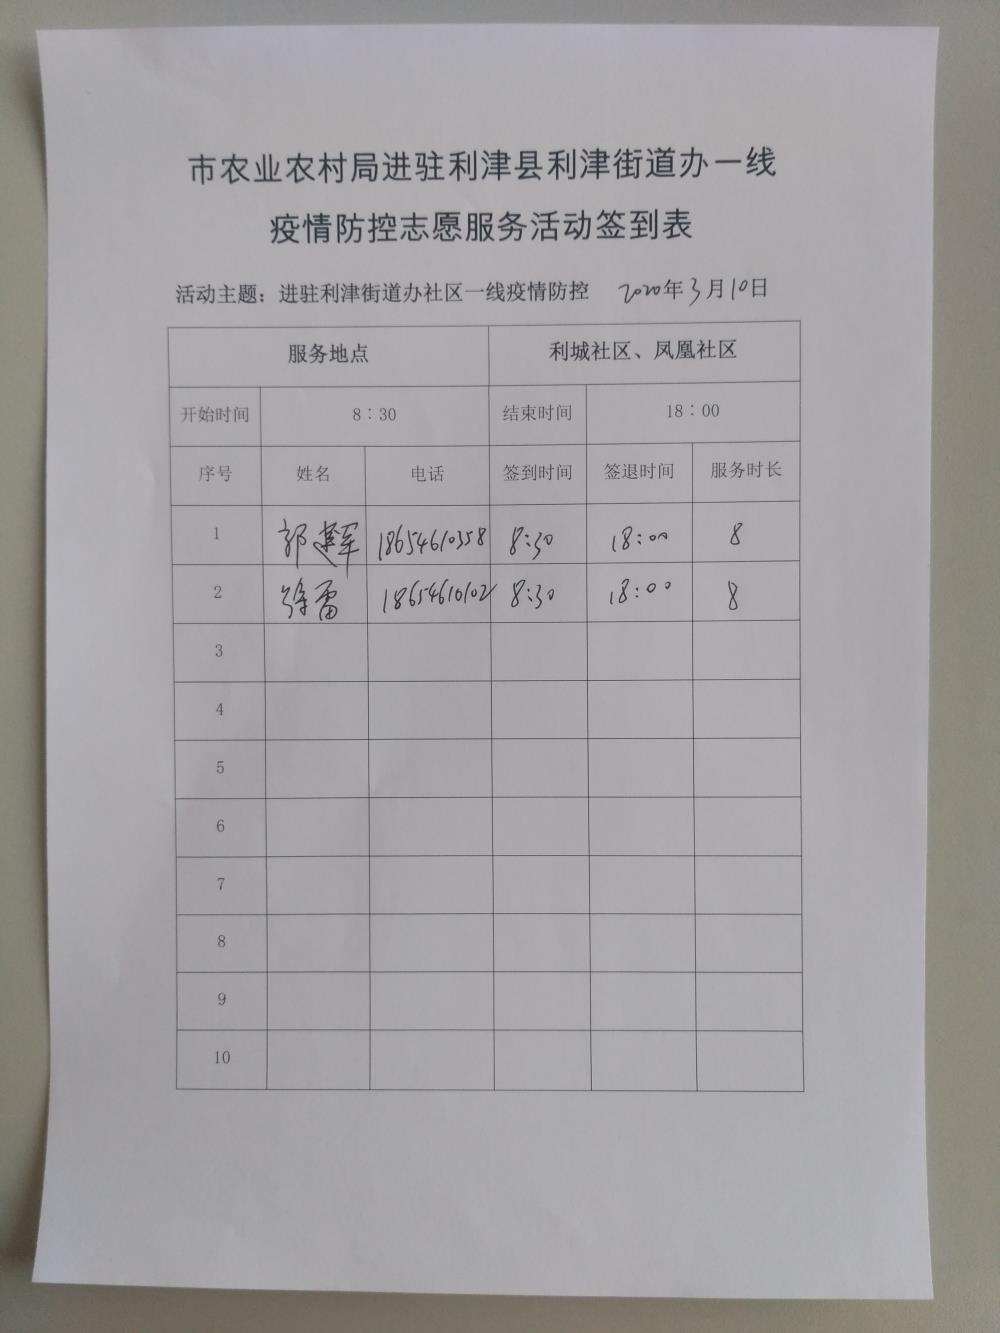 市农业农村局进驻利津县利津街道办一线
疫情防控志愿服务活动签到表
活动主题：进驻利津街道办社区一线疫情防控 2020年3月10日
服务地点 利城社区、凤凰社区
开始时间 8：30 结束时间 18：00
序号 姓名 电话 签到时间 签退时间 服务时长
1 郭建军 18654610358 8:30 18:00 8
2 徐雷 18654610102 8:30 18:00 8
3
4
5
6
7
8
9
10